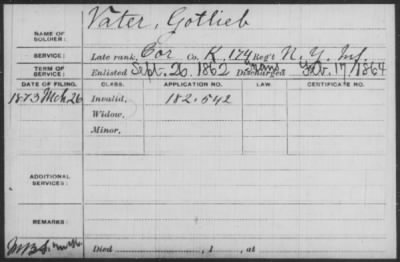 Vater, Gotlieb
NAME OF SOLDIER:
SERVICE: Late rank, Cor Co. K, 174 Reg't N. Y. Inf.
TERM OF SERVICE: Enlisted Sept. 26, 1862 Discharged Feb. 17, 1864
DATE OF FILING. CLASS. APPLICATION NO. LAW. CERTIFICATE NO.
1873 Mch 26 Invalid, 182.542
Widow,
Minor,
ADDITIONAL SERVICES:
REMARKS:
Died , 1 , at